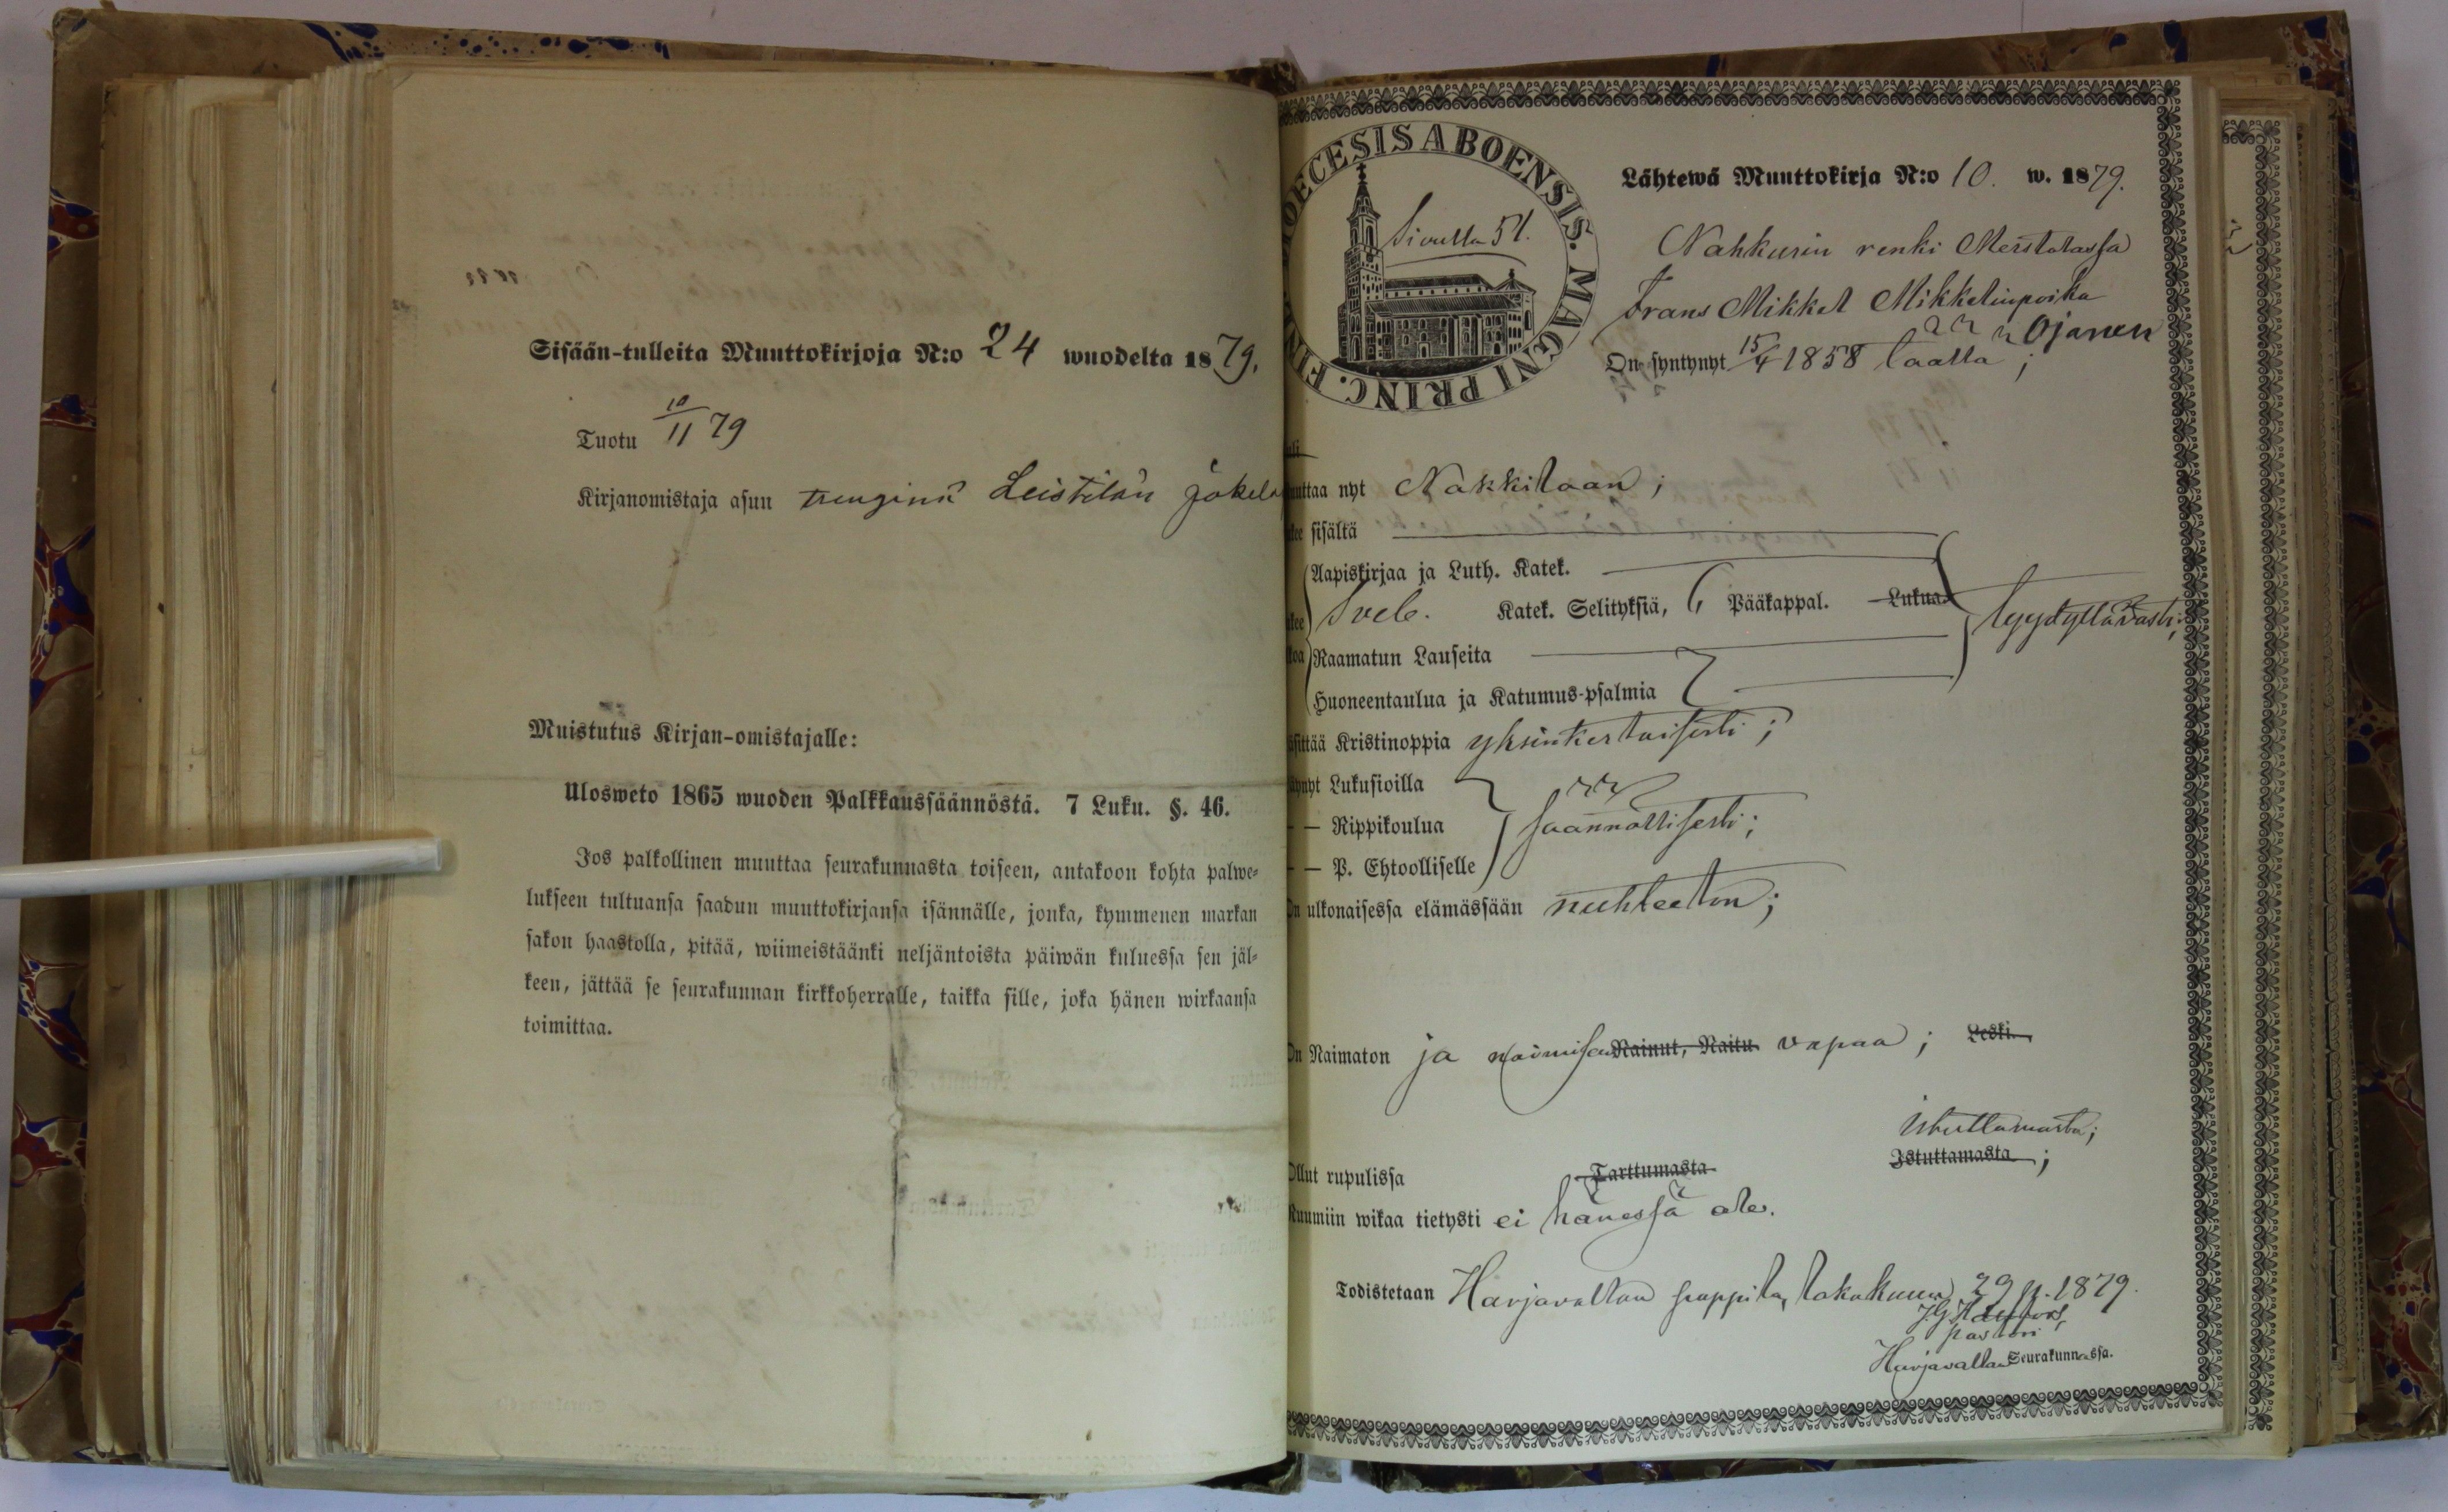 Sisään-tulleita Muuttokirjoja N:o 24 wuodelta 1879.
Tuotu 10/11 79
Kirjanomistaja asuu trenginä Leistilän Jokela
Muistutus Kirjan-omistajalle:
Ulosweto 1865 wuoden Palkkaussäännöstä. 7 Luku. §. 46.
Jos palkollinen muuttaa seurakunnasta toiseen, antakoon kohta palwe-
lukseen tultuansa saadun muuttokirjansa isännälle, jonka, kymmenen markan
sakon haastolla, pitää, wiimeistäänki neljäntoista päiwän kuluessa sen jäl-
keen, jättää se seurakunnan kirkkoherralle, taikka sille, joka hänen wirkaansa
toimittaa.
OECESIS ABOENSIS. MAGNI PRINC. FIN
Sivulla 51.
Lähtewä Muuttokirja N:o 10. w. 1879.
Nahkurin renki Merstolassa
Frans Mikkel Mikkelinpoika
Ojanen
On syntynyt 15/4 1858 täällä;
uttaa nyt Nakkilaan;
kee sisältä
Aapiskirjaa ja Luth. Katek.
Sveb. Katek. Selityksiä, 6 Pääkappal. Lukua tyydyttävästi;
Raamatun Lauseita
Huoneentaulua ja Katumus-psalmia
sittää Kristinoppia yksinkertaisesti;
ynyt Lukusioilla
— Rippikoulua säännöllisesti;
— P. Ehtoolliselle
On ulkonaisessa elämässään nuhteeton;
On Naimaton ja naimisen Nainut, Naitu vapaa; Leski
istuttamasta;
Ollut rupulissa Tarttumasta Istuttamasta;
Ruumiin wikaa tietysti ei hänessä ole.
Todistetaan Harjavallan pappila, lokakuun 29 p. 1879.
pastori
Harjavallan Seurakunnassa.